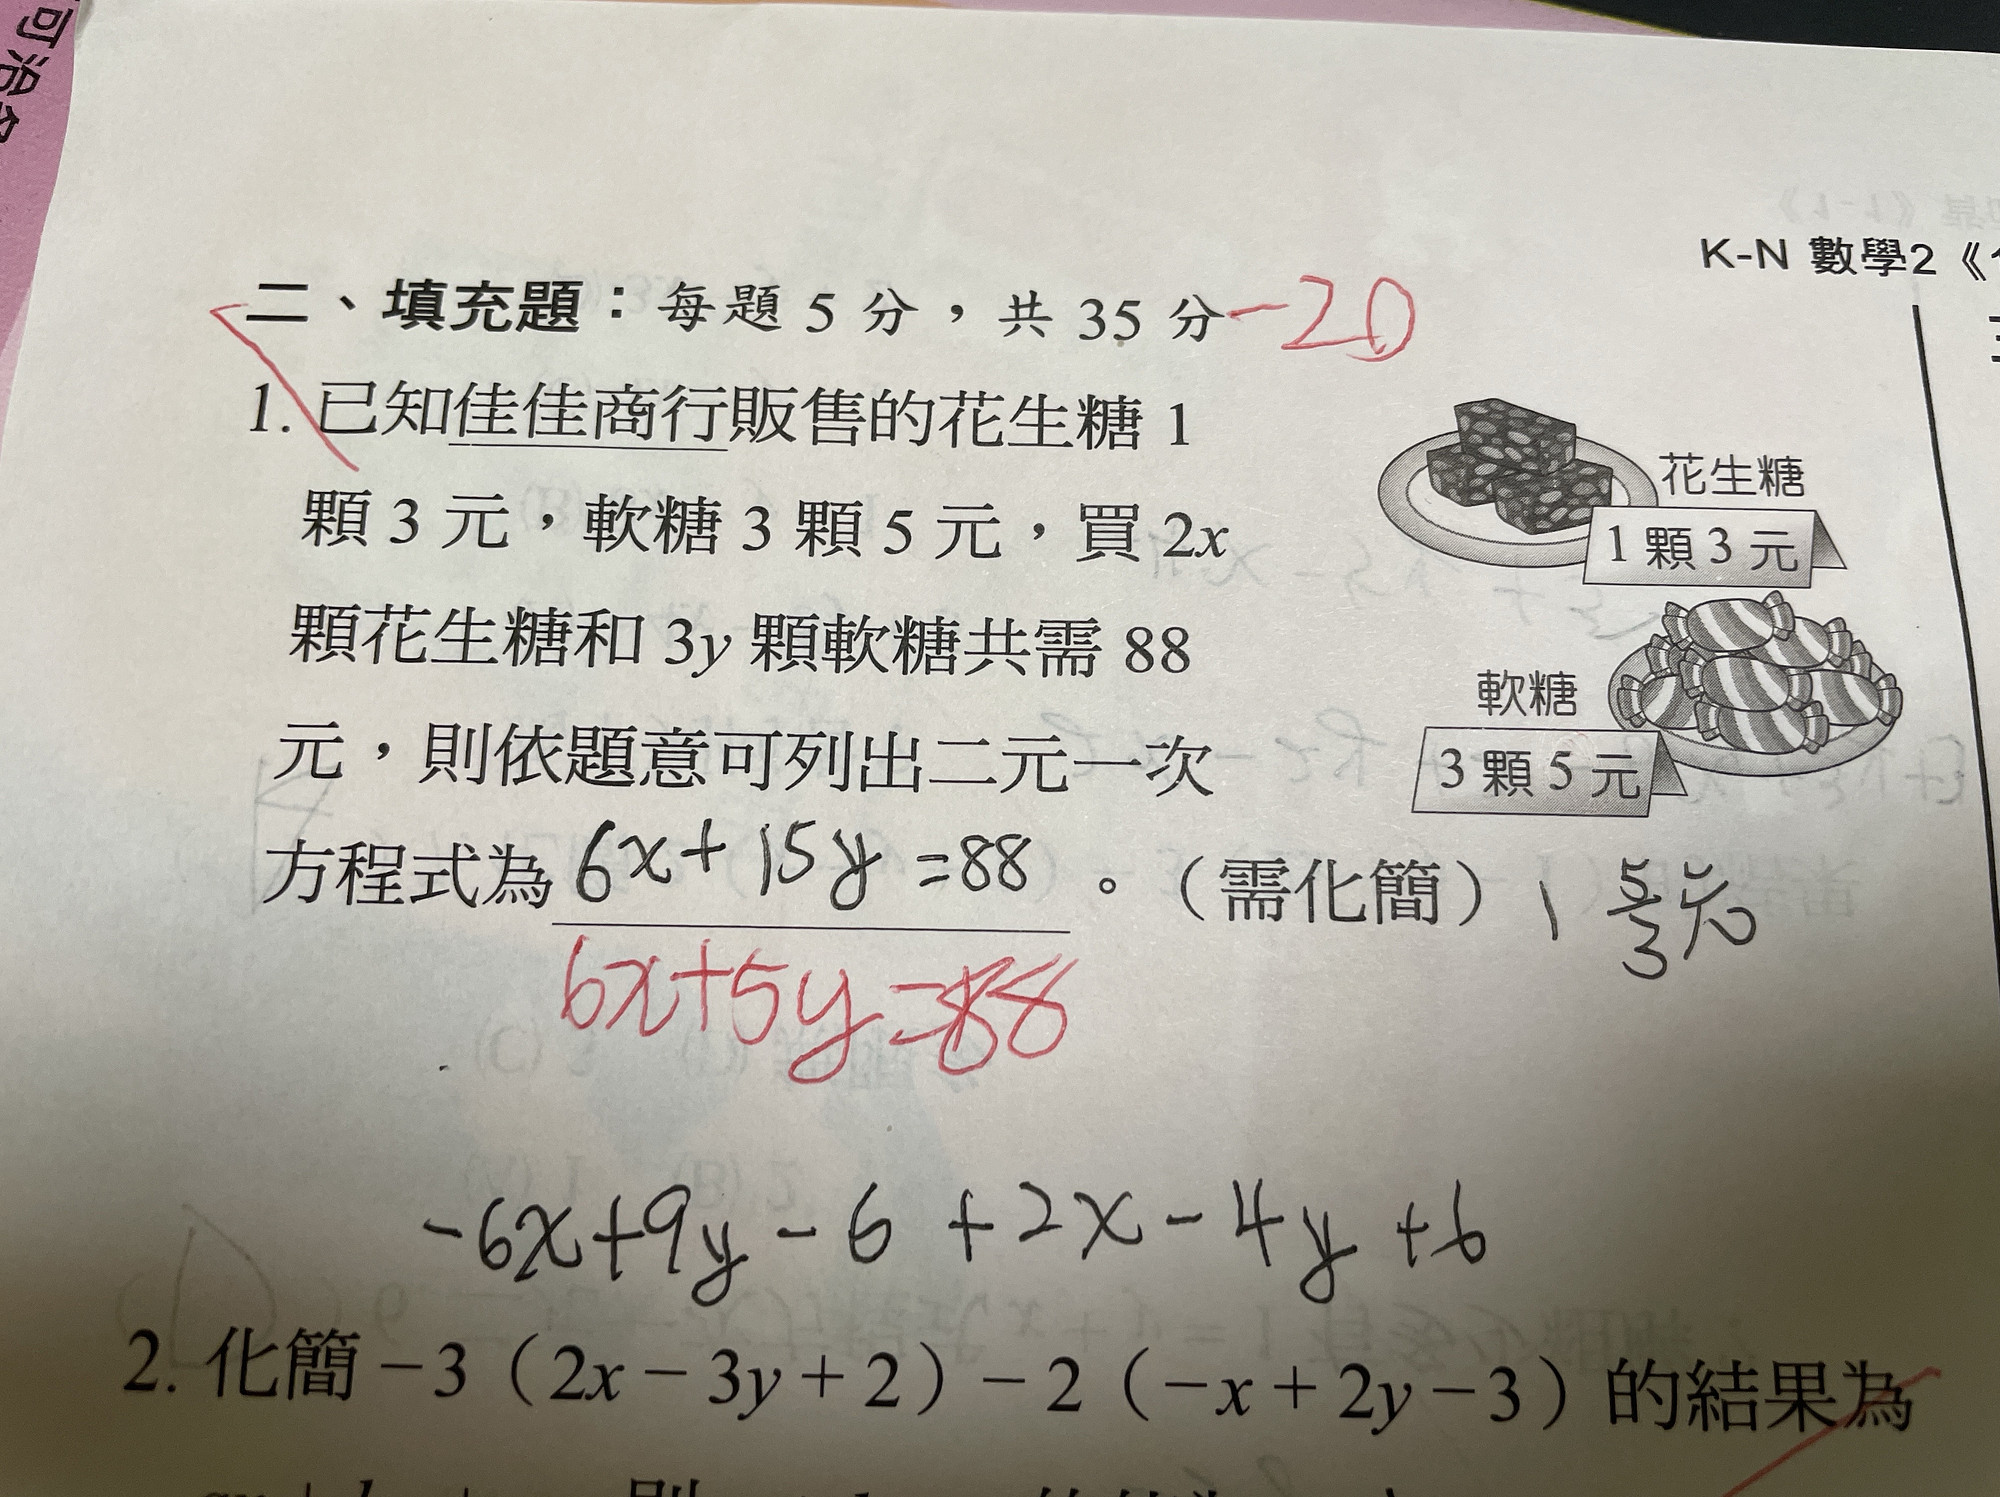 可沿
K-N 數學2《
二、填充題：每題 5 分，共 35 分 -20
1. 已知佳佳商行販售的花生糖 1
顆 3 元，軟糖 3 顆 5 元，買 2x
顆花生糖和 3y 顆軟糖共需 88
元，則依題意可列出二元一次
方程式為 6x+15y=88 。（需化簡）
6x+5y=88
花生糖
1 顆 3 元
軟糖
3 顆 5 元
1 5/3元
-6x+9y-6+2x-4y+6
2. 化簡－3（2x－3y＋2）－2（－x＋2y－3）的結果為